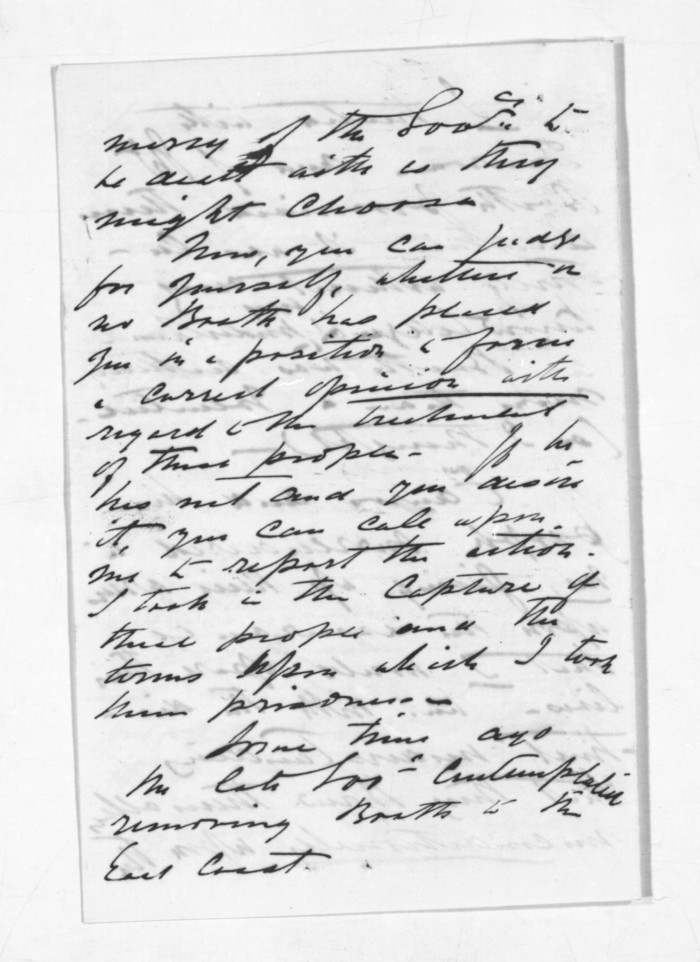 mercy of the Govt. to
be dealt with as they
might choose
Now, you can judge
for yourself, whether or
no Booth has placed
you in a position to form
a correct opinion with
regard to the treatment
of these people - If he
has not and you desire
it, you can call upon
me to report the action
I took in the Capture of
these people and the
terms upon which I took
them prisoners -
Some time ago
the late Govt Contemplated
removing Booth to the
East Coast.